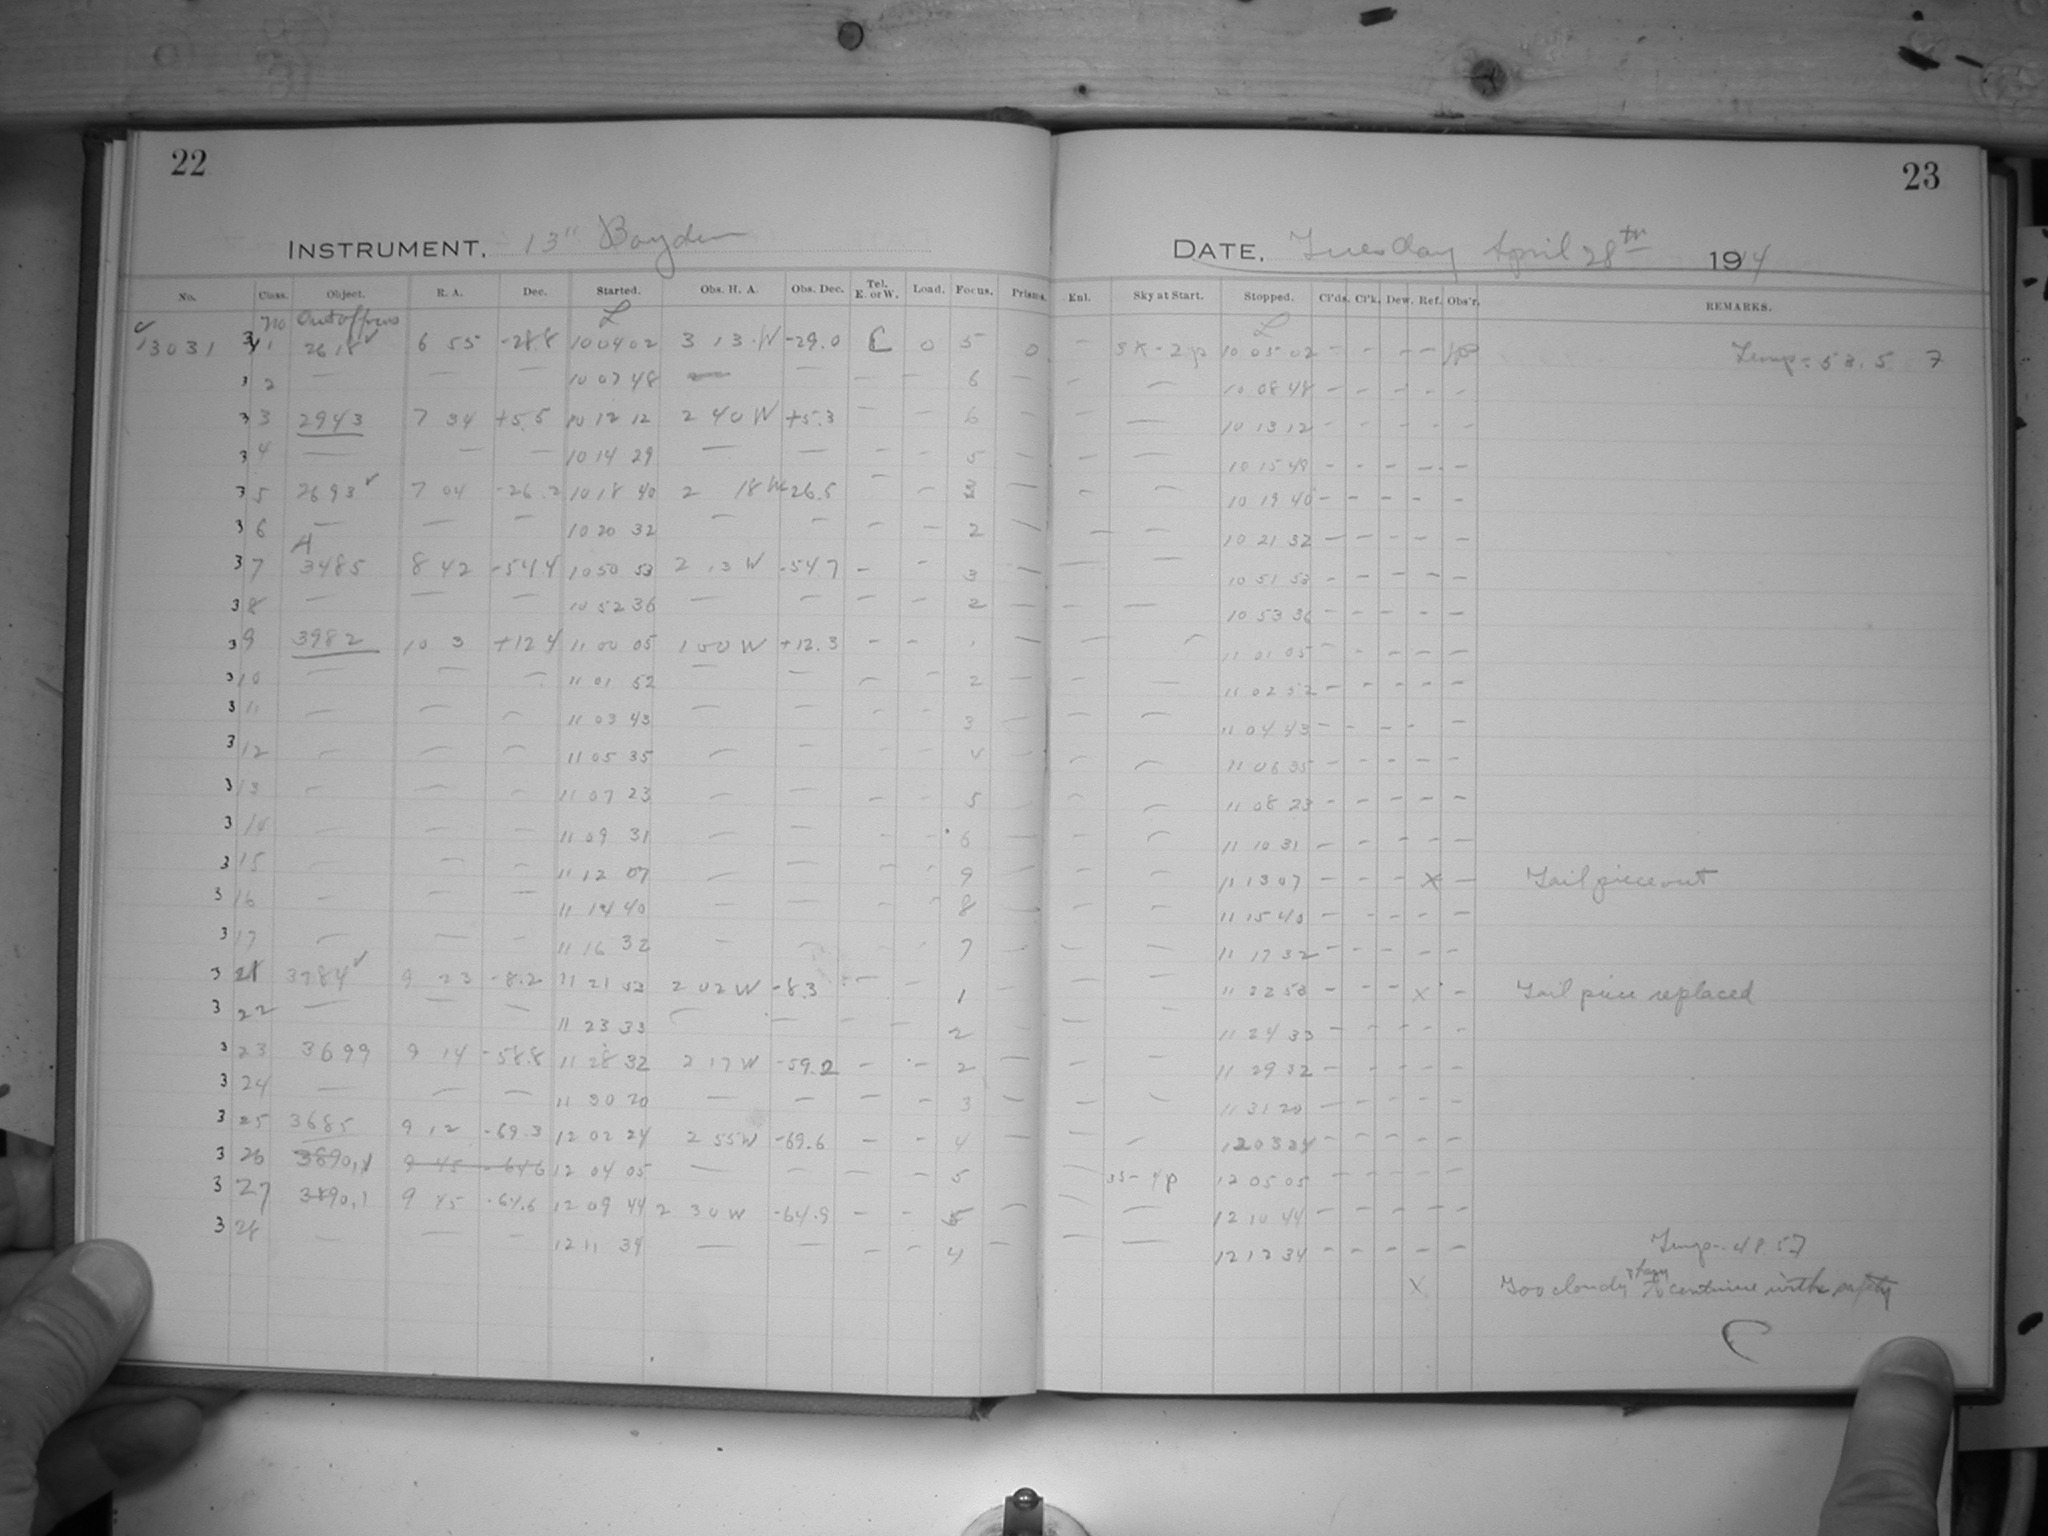 22
23
INSTRUMENT. 13" Boyden
DATE. Tuesday April 28th 1914
No. Class. Object. R. A. Dec. Started. Obs. H. A. Obs. Dec. Tel. E. or W. Load. Focus. Prisms. Enl. Sky at Start. Stopped. Cl'ds. Cl'k. Dew. Ref. Obs'r. REMARKS.
no Out of focus L L
✓13031 3 1 2618✓ 6 55 -28.8 10 04 02 3 13 W -29.0 E 0 5 0 - 10 05 02 - - - - Temp = 53.5
3 2 — — — 10 07 48 — — — — 6 - — 10 08 48 - - - - -
3 3 2943 7 34 +5.5 10 12 12 2 40 W +5.3 — — 6 — — 10 13 12 - - - - -
3 4 — — — 10 14 29 — — - - 5 — — — 10 15 49 - - - - -
3 5 2693✓ 7 04 -26.2 10 18 40 2 18 W -26.5 - - 3 — - — 10 19 40 - - - - -
3 6 — — — 10 20 32 — — - - 2 — — — 10 21 32 - - - - -
A
3 7 3485 8 42 -54.4 10 50 53 2 13 W -54.7 - - 3 — — — 10 51 53 - - - - -
3 8 — — — 10 52 36 — — - - 2 — — — 10 53 36 - - - - -
3 9 3982 10 3 +12.4 11 00 05 1 00 W +12.3 - - 1 — — — 11 01 05 - - - - -
3 10 — — — 11 01 52 — — - - 2 — — — 11 02 52 - - - - -
3 11 — — — 11 03 43 — — - - 3 — — — 11 04 43 - - - - -
3 12 — — — 11 05 35 — — - - 4 — — — 11 06 35 - - - - -
3 13 — — — 11 07 23 — — - - 5 — — — 11 08 23 - - - - -
3 14 — — — 11 09 31 — — - - 6 — — — 11 10 31 - - - - -
3 15 — — — 11 12 07 — — - - 9 — — — 11 13 07 - - - X - Tail piece out
3 16 — — — 11 14 40 — — - - 8 — — — 11 15 40 - - - - -
3 17 — — — 11 16 32 — — - - 7 — — — 11 17 32 - - - - -
3 21 3784✓ 9 23 -8.2 11 21 53 2 02 W -8.3 - - 1 — — 11 22 53 - - - X - Tail piece replaced
3 22 — — — 11 23 33 — — - - 2 — — 11 24 33 - - - - -
3 23 3699 9 14 -58.8 11 28 32 2 17 W -59.2 - - 2 — — — 11 29 32 - - - - -
3 24 — — — 11 30 20 — — - - 3 — — — 11 31 20 - - - - -
3 25 3685 9 12 -69.3 12 02 24 2 55 W -69.6 - - 4 — — — 12 03 24 - - - - -
3 26 3890,1 9 45 -64.6 12 04 05 — — - - 5 — 12 05 05 - - - - -
3 27 3890,1 9 45 -64.6 12 09 44 2 30 W -64.9 - - 5 — — — 12 10 44 - - - - -
3 28 — — — 12 11 34 — — - - 4 — — — 12 12 34 - - - - - Temp =
X Too cloudy to continue with safety